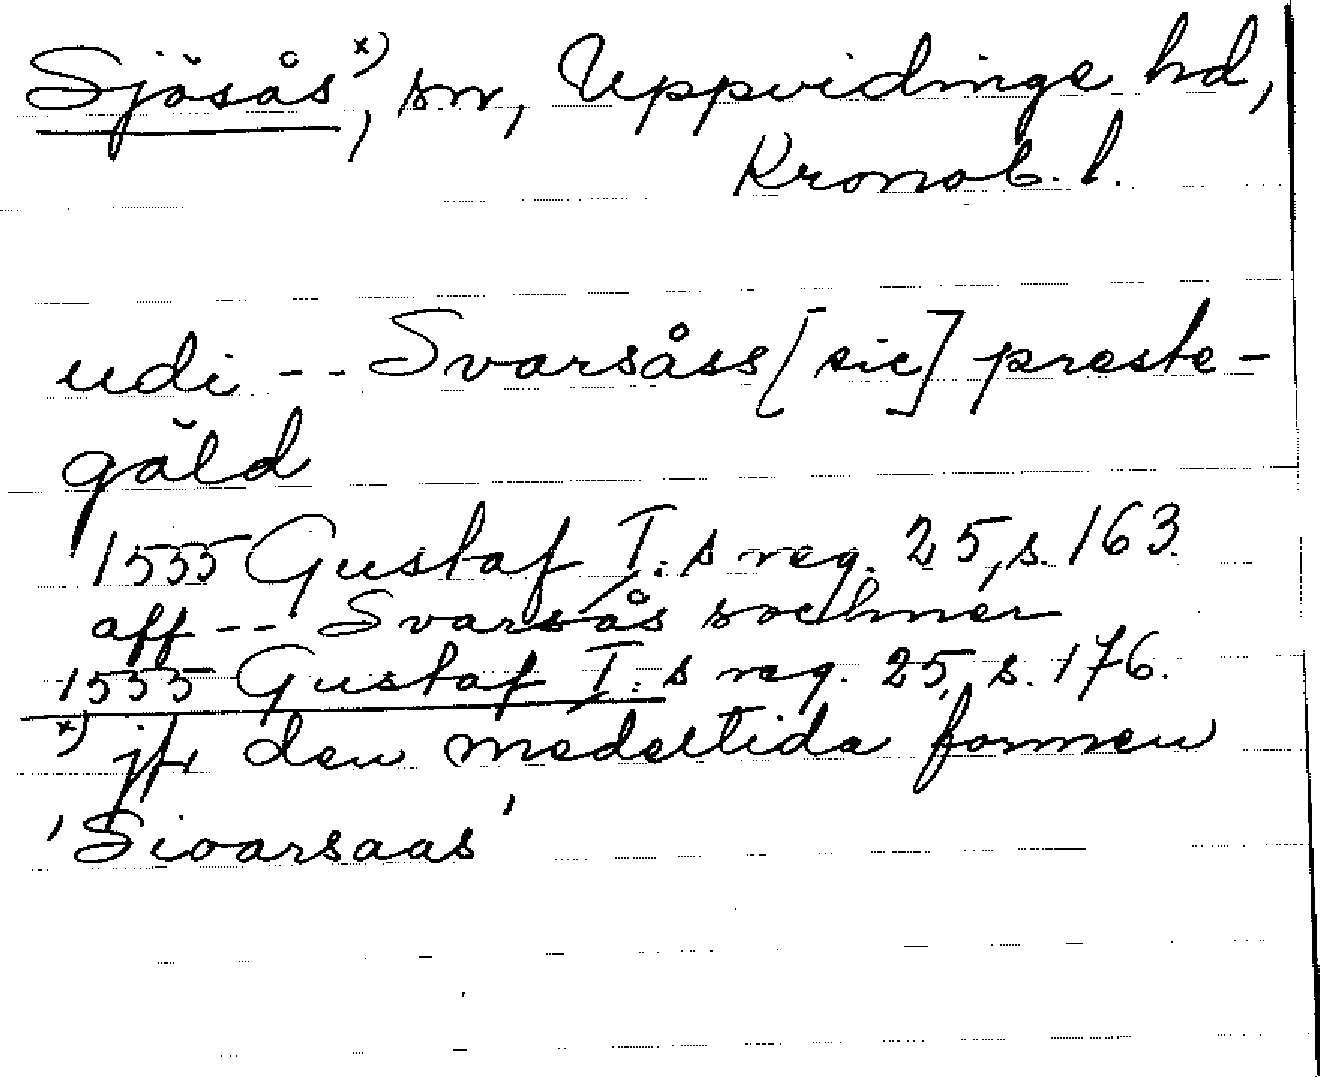 Sjösås x), sn, Uppvidinge hd,
Kronob. l.
udi -- Svarsåss [sic] preste-
gäld
1555 Gustaf I:s reg. 25, s. 163.
aff -- Svarsås sochner
1555 Gustaf I:s reg. 25, s. 176.
x) jfr den medeltida formen
'Sioarsaas'